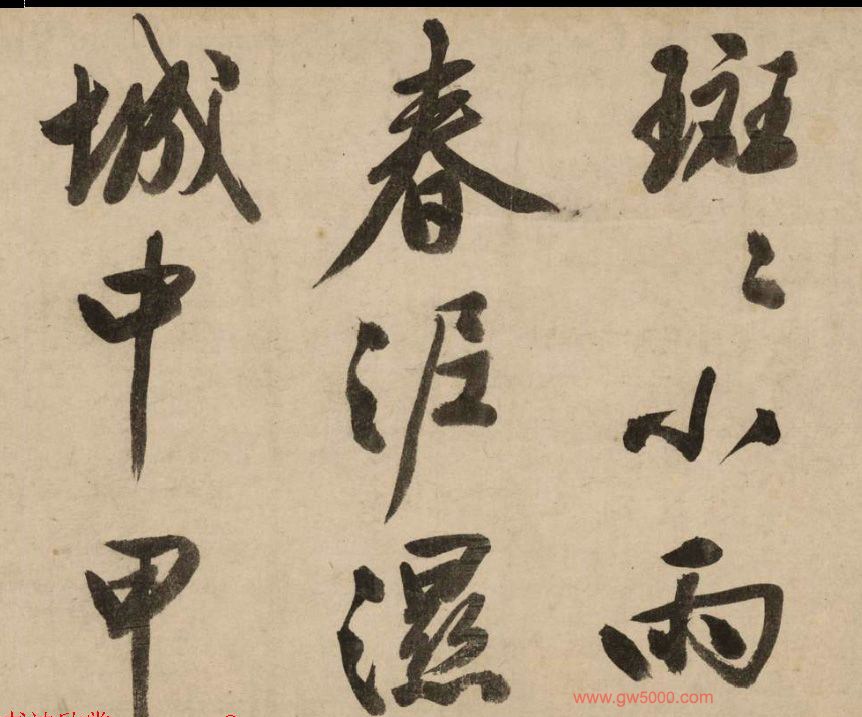 斑〻小雨
春泥濕
城中甲
www.gw5000.com